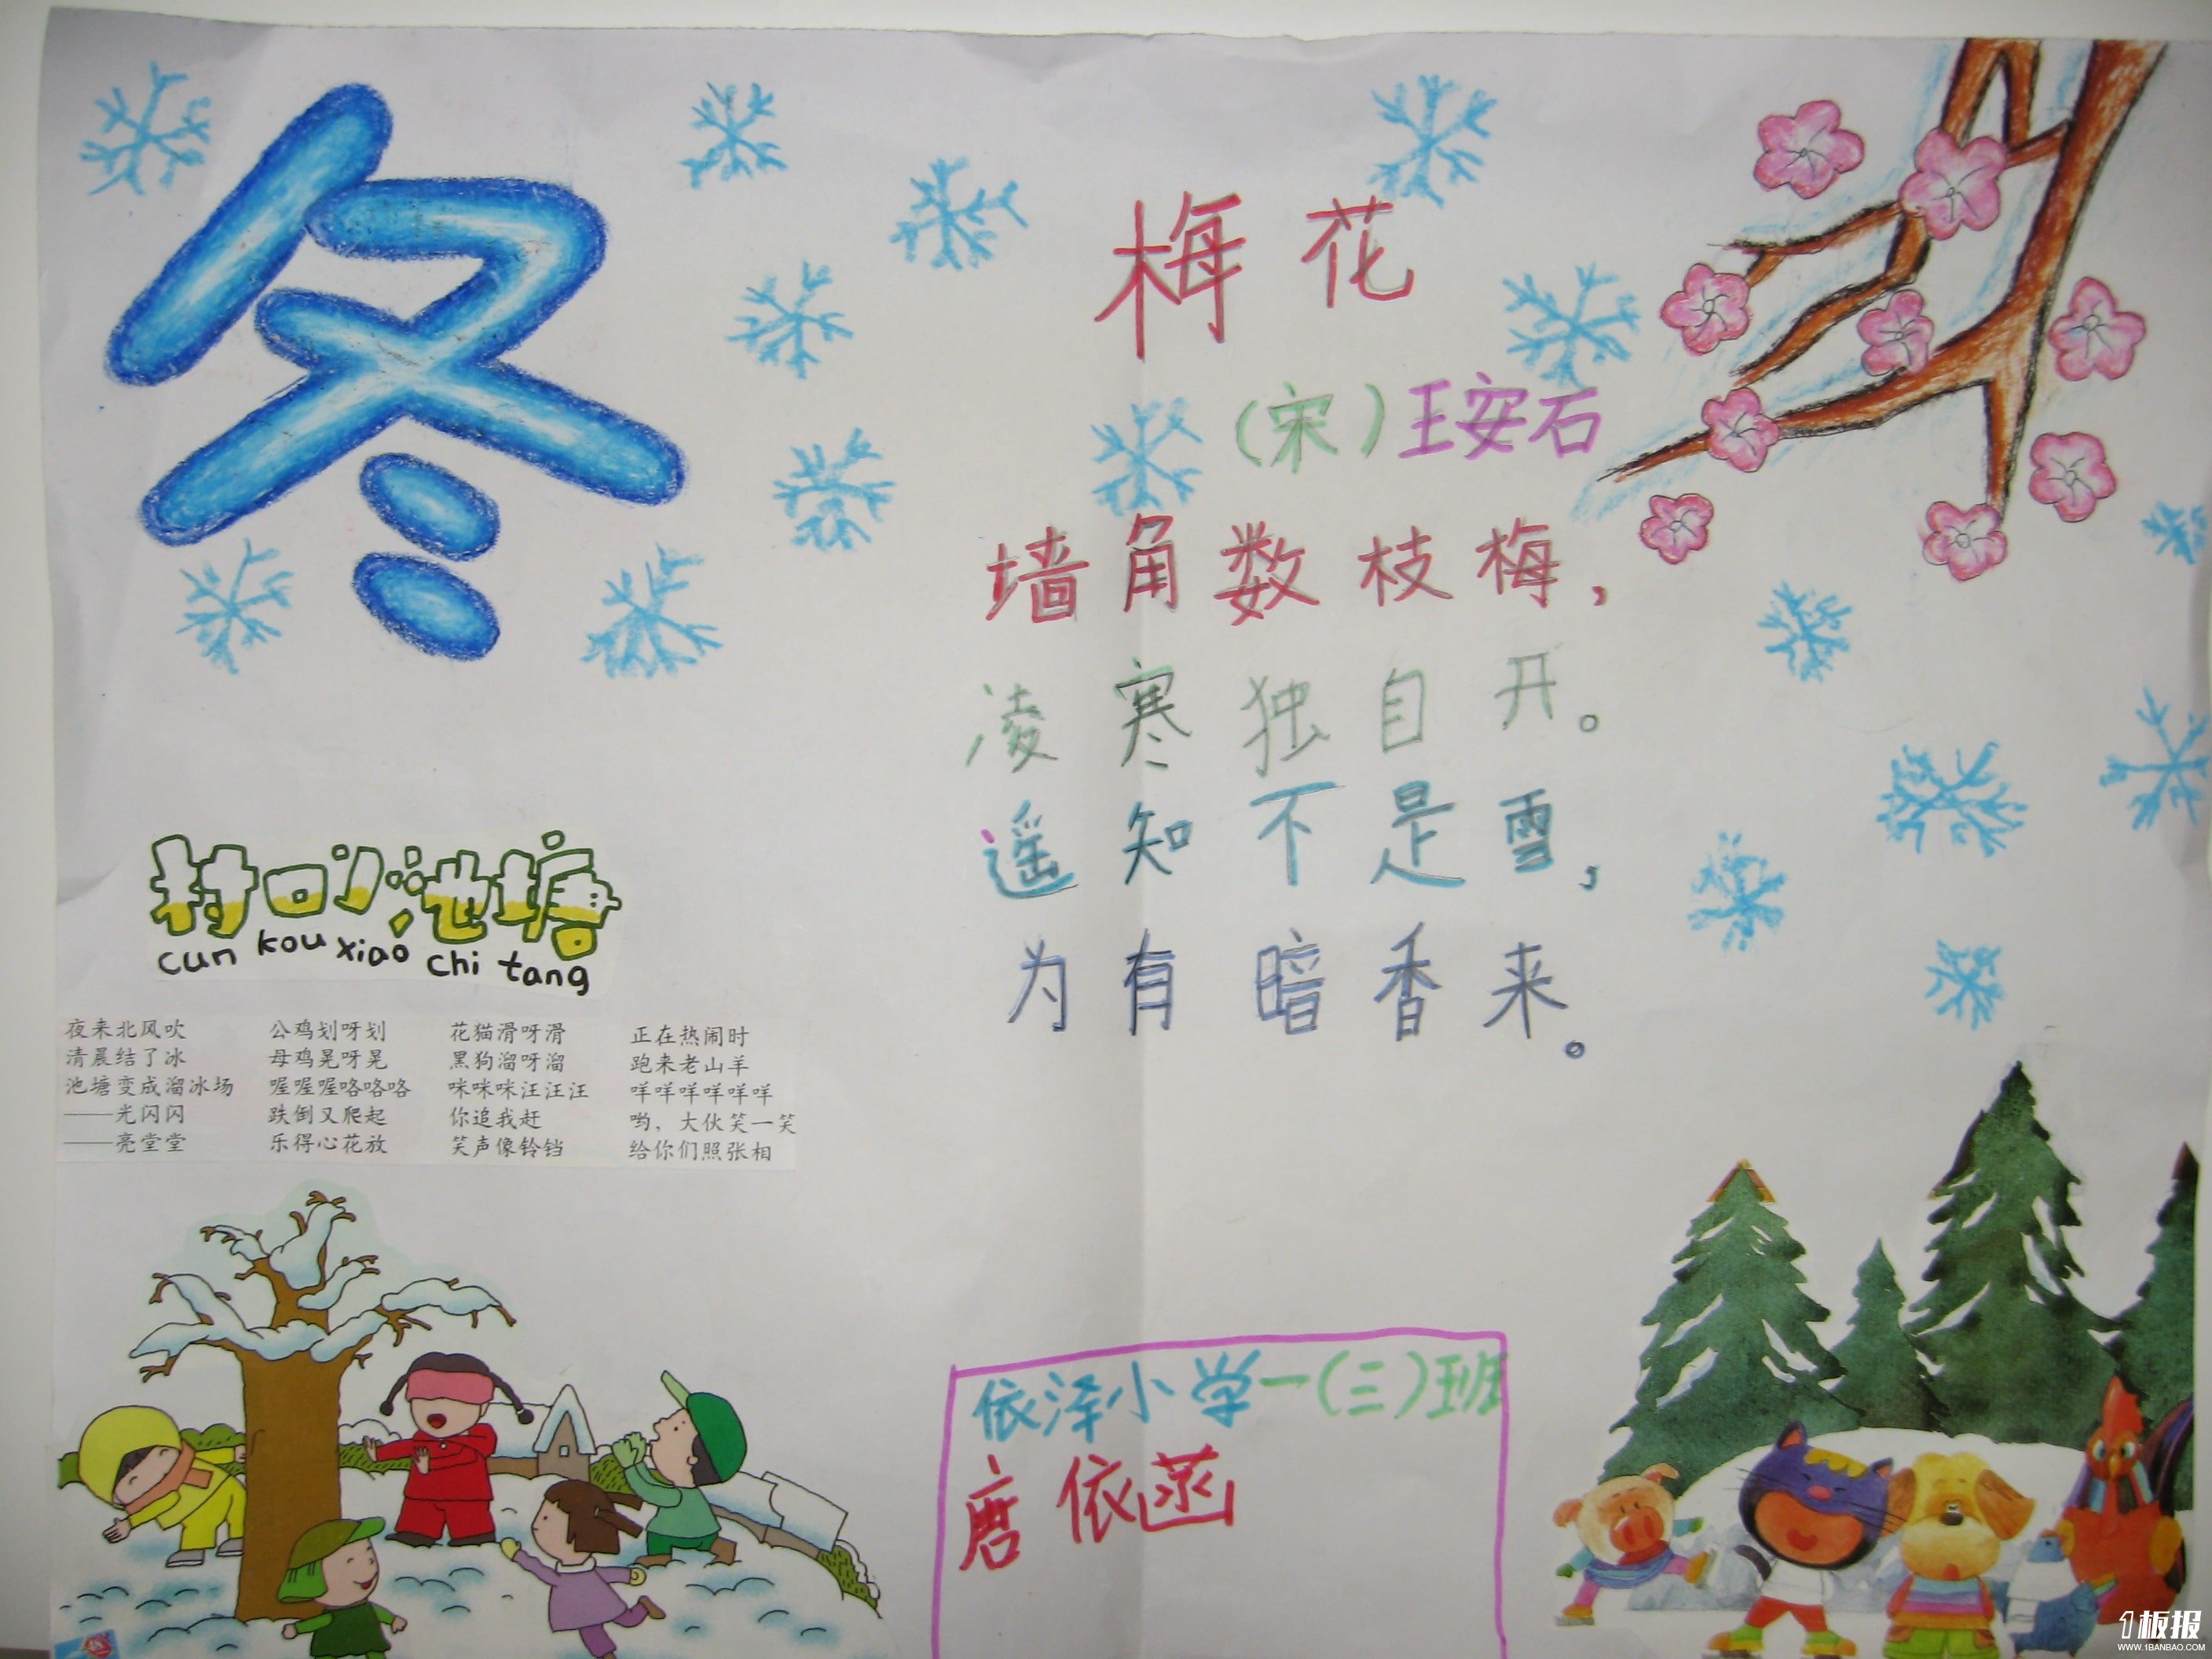 冬
梅花
(宋)王安石
墙角数枝梅,
凌寒独自开。
遥知不是雪,
为有暗香来。
村口小池塘
cun kou xiao chi tang
夜来北风吹
清晨结了冰
池塘变成溜冰场
——光闪闪
——亮堂堂
公鸡划呀划
母鸡晃呀晃
喔喔喔咯咯咯
跌倒又爬起
乐得心花放
花猫滑呀滑
黑狗溜呀溜
咪咪咪汪汪汪
你追我赶
笑声像铃铛
正在热闹时
跑来老山羊
咩咩咩咩咩咩
哟,大伙笑一笑
给你们照张相
依泽小学一(三)班
唐依菡
1板报
WWW.1BANBAO.COM